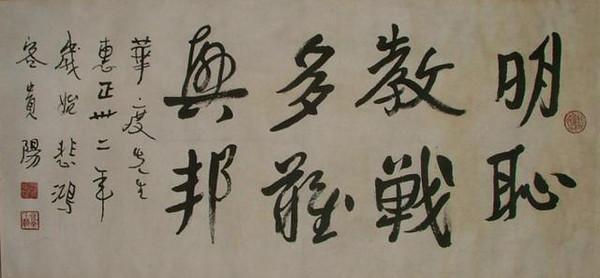 明恥
教戦
多難
興邦
華度先生
惠正卅二年
歲始悲鴻
客貴陽